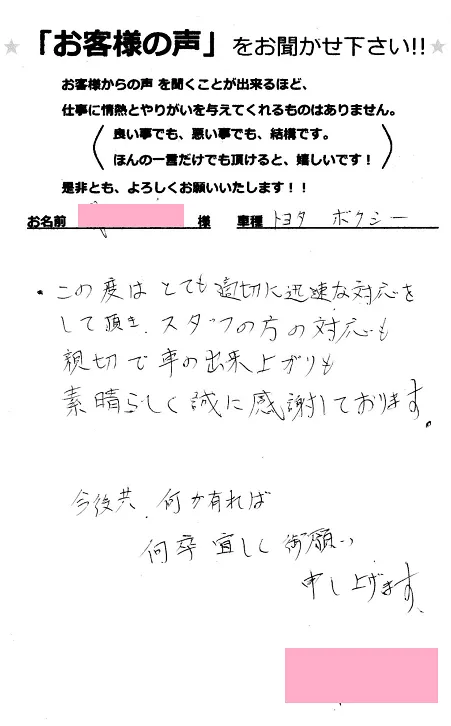 「お客様の声」をお聞かせ下さい!!
お客様からの声を聞くことが出来るほど、
仕事に情熱とやりがいを与えてくれるものはありません。
良い事でも、悪い事でも、結構です。
ほんの一言だけでも頂けると、嬉しいです！
是非とも、よろしくお願いいたします！！
お名前 様 車種 トヨタ ボクシー
・この度は とても適切に迅速な対応を
して頂き、スタッフの方の対応も
親切で車の出来上がりも
素晴らしく誠に感謝しております。
今後共、何か有れば
何卒宜しく御願い
申し上げます、